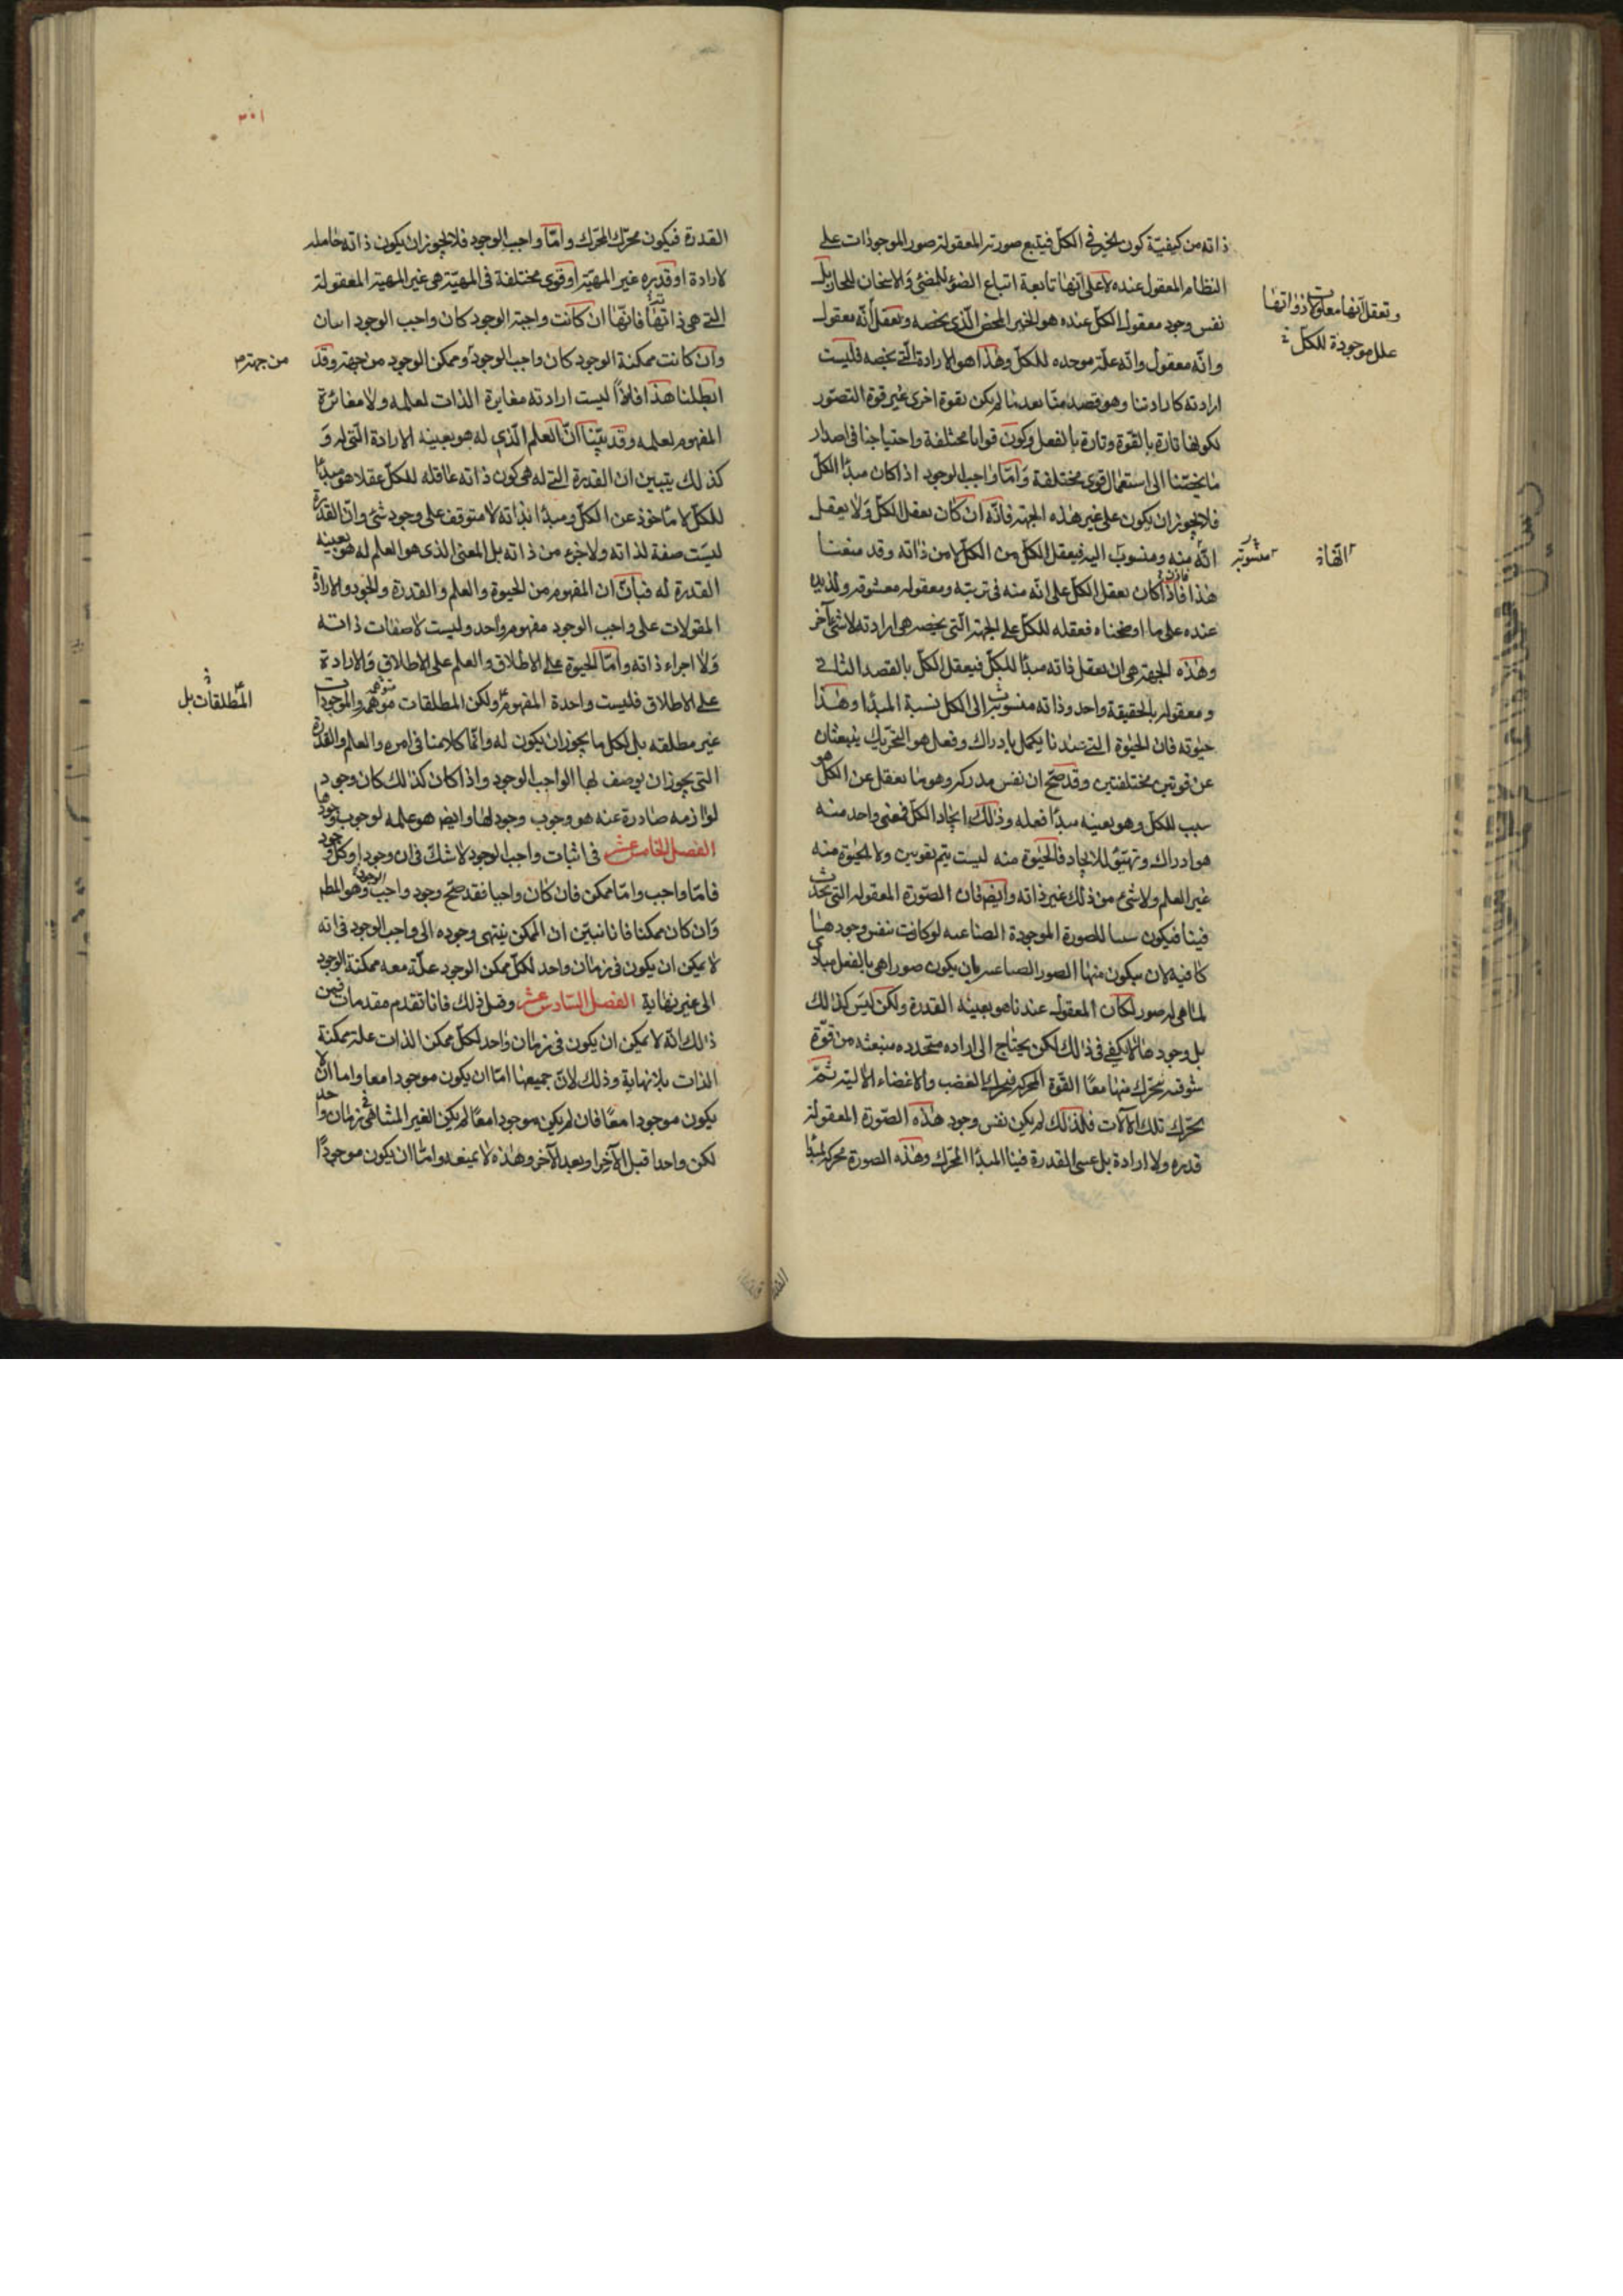 ذاته من كيفيّة كون الخير في الكلّ فيتبع صورته المعقولة صور الموجودات على
النظام المعقول عنده لا على انّها تابعة اتباع الضوء للمضئ والاسخان للحار بل
نفس وجود معقول الكلّ عنده هو الخير المحض الّذى يخصه ويعقل أنّه معقول
وانّه معقول وانّه علّة موجده للكلّ وهذا هو الارادة الّتي يخصه فليست
ارادته كارادتنا وهو قصد منّا بعد ما لم يكن بقوة اخرى غير قوة التصوّر
لكونها تارة بالقوّة وتارة بالفعل وكون قوانا مختلفة واحتياجنا في اصدار
ما يخصّنا الى استعمال قوى مختلفة وامّا واجب الوجود اذا كان مبدأ الكلّ
فلا يجوز ان يكون على غير هذه الجهة فانّه ان كان يعقل الكلّ ولا يعقل
انّه منه ومنسوب اليه فيعقل الكلّ من الكلّ لا من ذاته وقد منعنا
هذا فاذا كان يعقل الكلّ على انّه منه في تربته ومعقوله معشوقه ولذيذه
عنده على ما اوضحناه فعقله للكلّ على الجهة الّتي يخصه هي ارادته لا شئ آخر
وهذه الجهة هي ان يعقل ذاته مبدأ للكلّ فيعقل الكلّ بالقصد الثاني
ومعقوله بالحقيقة واحد وذاته منسوبة الى الكل نسبة المبدأ وهذا
حيوته فان الحيوة التي عندنا يكمل بادراك وفعل هو التحريك ينبعثان
عن قوتين مختلفتين وقد صحّ ان نفس مدركه وهو ما يعقل عن الكل هو
سبب للكلّ وهو بعينه مبدأ فعله وذلك ايجاد الكلّ فمعنى واحد منه
هو ادراك وتهيّئ للايجاد فالحيوة منه ليست يتم بقوتين ولا الحيوة منه
غير العلم ولا شئ من ذلك غير ذاته وايضا فان الصّورة المعقولة التي تحدث
فينا فيكون سببا للصورة الموجودة الصناعية لو كانت بنفس وجودها
كافية لان يتكون منها الصور الصناعية بان يكون صورا هي بالفعل مبادى
لما هي له صور لكان المعقول عندنا هو بعينه القدرة ولكن ليس كذلك
بل وجودها لا يكفي في ذلك لكن يحتاج الى اراده متجدده منبعثه من قوّة
شوقيه يتحرك منها معا القوّة المحركة فيحرك العصب والاعضاء الالية ثمّ
يحرّك تلك الآلات فلذلك لم يكن نفس وجود هذه الصّورة المعقولة
قدره ولا ارادة بل عسى القدرة فينا المبدأ المحرّك وهذه الصورة محركة لمبدأ
وتعقل انّها معلولات ذواتها
علل موجودة للكلّ
القدرة فيكون محرّك المحرّك وامّا واجب الوجود فلا يجوز ان يكون ذاته حاملة
لارادة او قدره غير المهيّة او قوى مختلفة في المهيّة هي غير المهية المعقولة
التي هي ذاتها فانّها ان كانت واجبة الوجود كان واجب الوجود اثنان
وان كانت ممكنة الوجود كان واجب الوجود وممكن الوجود من جهة وقد
ابطلنا هذا فلاذا ليست ارادته مغايرة الذات لعلمه ولا مغائرة
المفهوم لعلمه وقد بيّنا انّ العلم الّذي له هو بعينه الارادة الّتي له و
كذلك يتبين ان القدرة التي له هي كون ذاته عاقله للكلّ عقلا هو مبدأ
للكلّ لا مأخوذ عن الكلّ ومبدأ بذاته لا متوقف على وجود شئ وانّ القدرة
ليست صفة لذاته ولا جزء من ذاته بل المعنى الذى هو العلم له هو بعينه
القدرة له فبان ان المفهوم من الحيوة والعلم والقدرة والجود والارادة
المقولات على واجب الوجود مفهوم واحد وليست لا صفات ذاته
ولا اجزاء ذاته وامّا الحيوة على الاطلاق والعلم على الاطلاق والارادة
على الاطلاق فليست واحدة المفهوم ولكن المطلقات متوهمة والموجودات
غير مطلقه بل لكل ما يجوز ان يكون له وانّما كلامنا في امره والعلم والقدرة
التي يجوز ان يوصف لها الواجب الوجود واذا كان كذلك كان وجود
لوازمه صادرة عنه هو وجوب وجود لها وايضا هو علمه لوجوب وجودها
الفصل الخامس عشر في اثبات واجب الوجود لا شك في ان وجودا وكل وجود
فامّا واجب وامّا ممكن فان كان واجبا فقد صحّ وجود واجب الوجود وهو المط
وان كان ممكنا فانا نبيّن ان الممكن ينتهى وجوده الى واجب الوجود فانه
لا يمكن ان يكون في زمان واحد لكلّ ممكن الوجود علّة معه ممكنة الوجود
الى غير نهاية الفصل السادس عشر وقبل ذلك فانا نقدم مقدمات فمن
ذلك انّه لا يمكن ان يكون في زمان واحد لكلّ ممكن الذات علة ممكنة
الذات بلا نهاية وذلك لانّ جميعها امّا ان يكون موجودا معا واما ان لا
يكون موجودا معا فان لم يكن موجودا معا لم يكن الغير المتناهي في زمان واحد
لكن واحدا قبل الآخر او بعد الآخر وهذه لا نمنعه وامّا ان يكون موجودا
من جهة
المطلقات بل
٣٠١